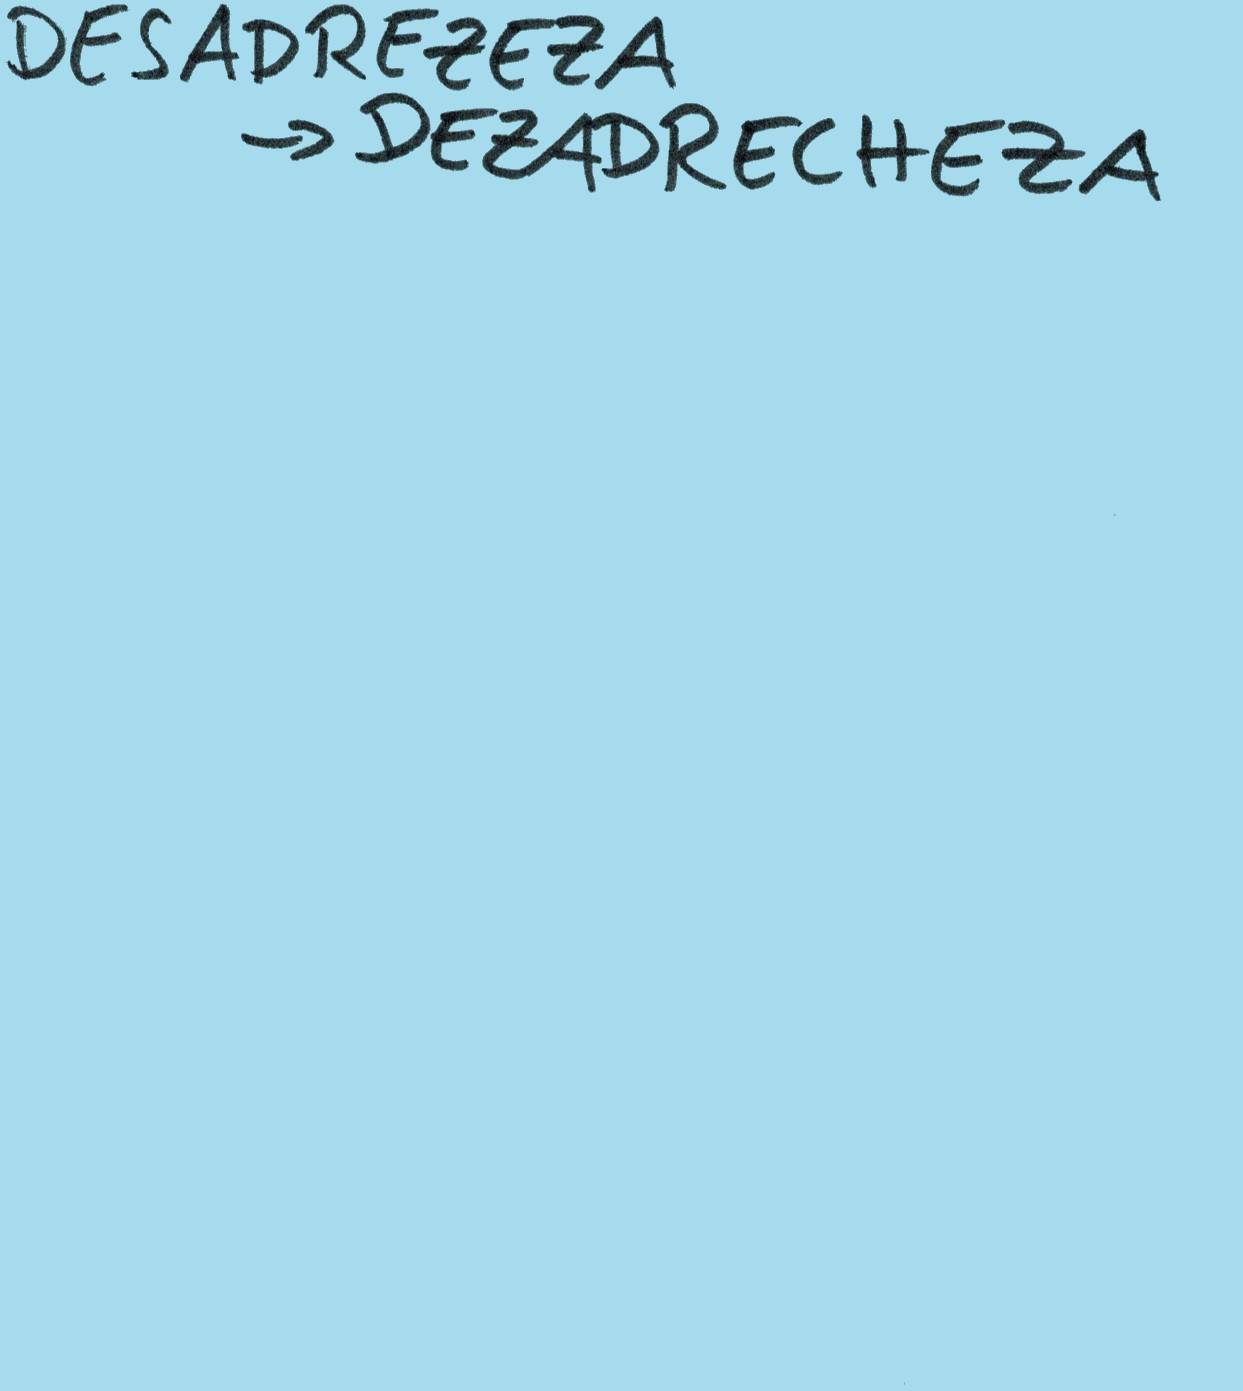 DESADREZEZA
→ DEZADRECHEZA